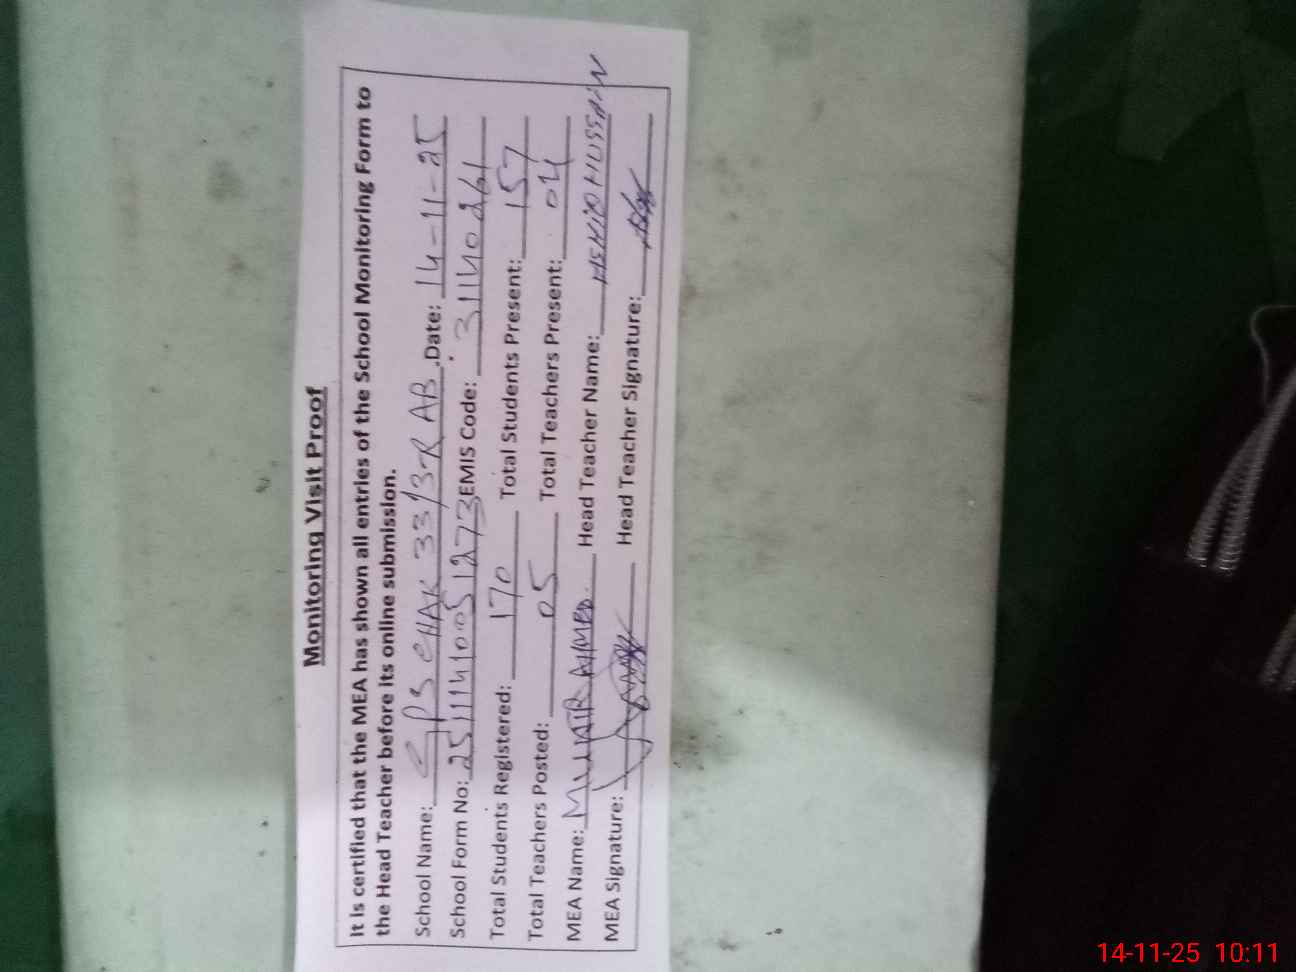 Monitoring Visit Proof
It is certified that the MEA has shown all entries of the School Monitoring Form to
the Head Teacher before its online submission.
School Name: GPS CHAK 33/3-R AB .Date: 14-11-25
School Form No: 25111410051273 EMIS Code: 31140261
Total Students Registered: 170 Total Students Present: 157
Total Teachers Posted: 05 Total Teachers Present: 04
MEA Name: AHMED Head Teacher Name: HUSSAIN
MEA Signature: Head Teacher Signature:
14-11-25 10:11